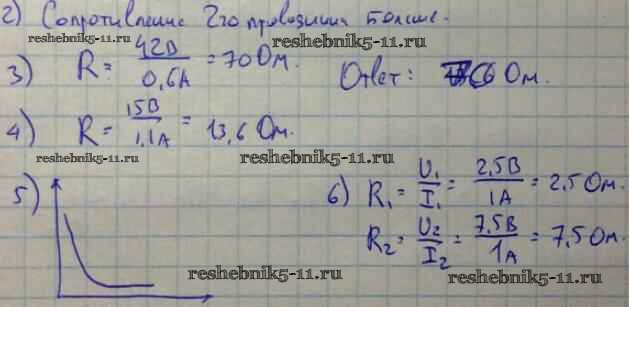 2) Сопротивление 2го проводника больше.
reshebnik5-11.ru
reshebnik5-11.ru
3) R = 42В / 0,6А = 70 Ом. Ответ: Ом.
reshebnik5-11.ru
4) R = 15В / 1,1А = 13,6 Ом.
reshebnik5-11.ru
reshebnik5-11.ru
5)
6) R₁ = U₁ / I₁ = 2,5В / 1А = 2,5 Ом.
R₂ = U₂ / I₂ = 7,5В / 1А = 7,5 Ом.
reshebnik5-11.ru
reshebnik5-11.ru